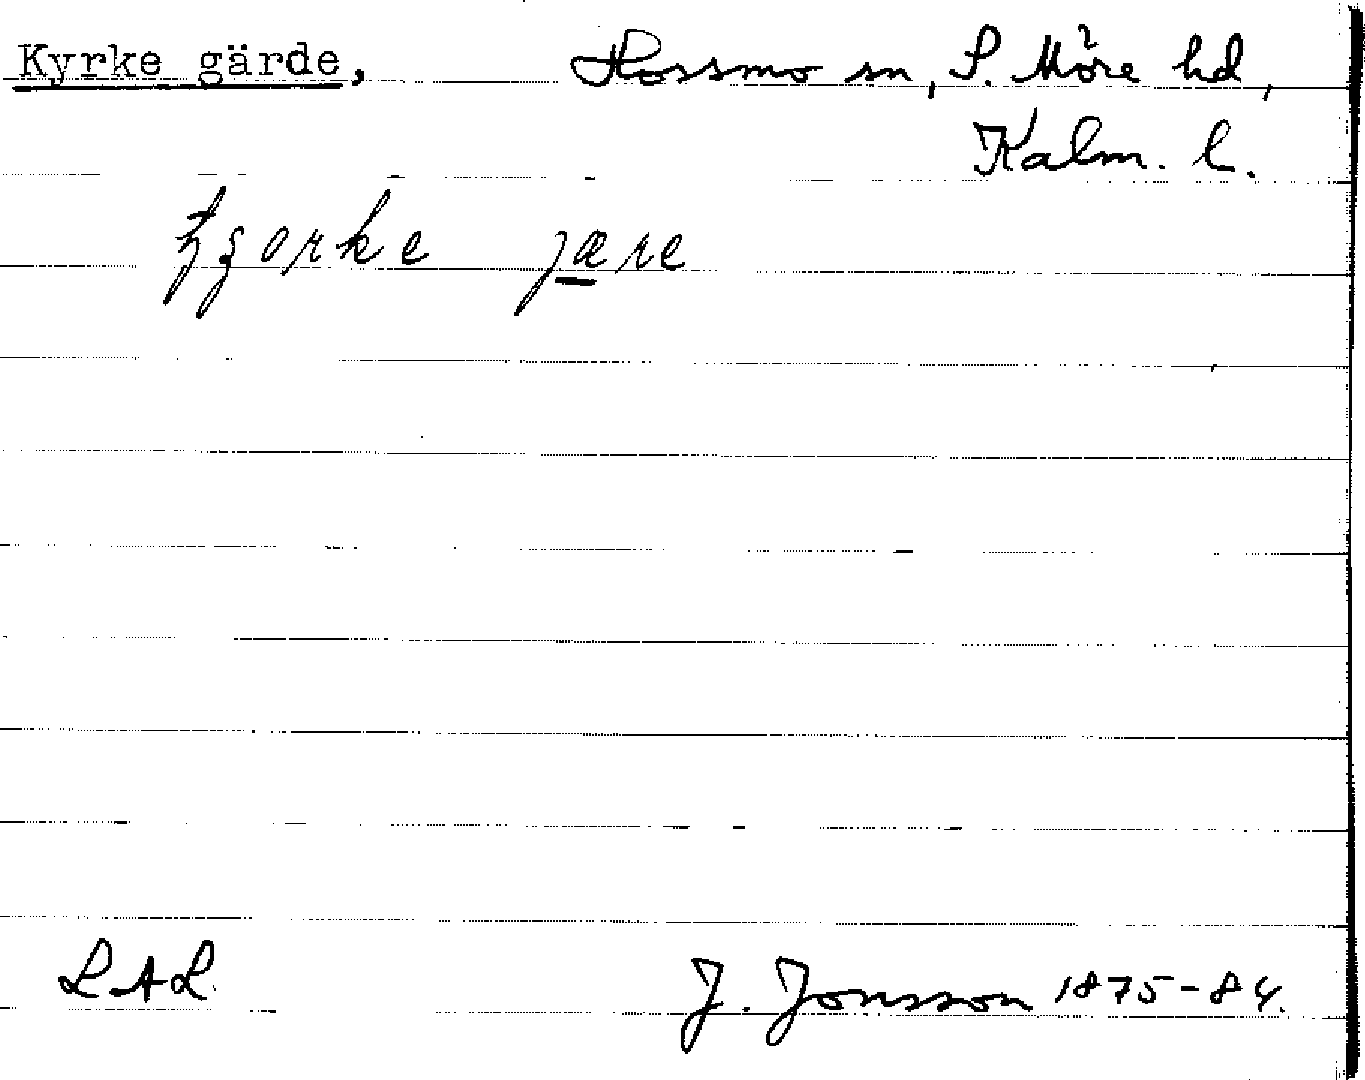 Kyrke gärde, Hossmo sn, S. Möre hd,
Kalm. l.
jære
LAL.
J. Jonsson 1875-84.